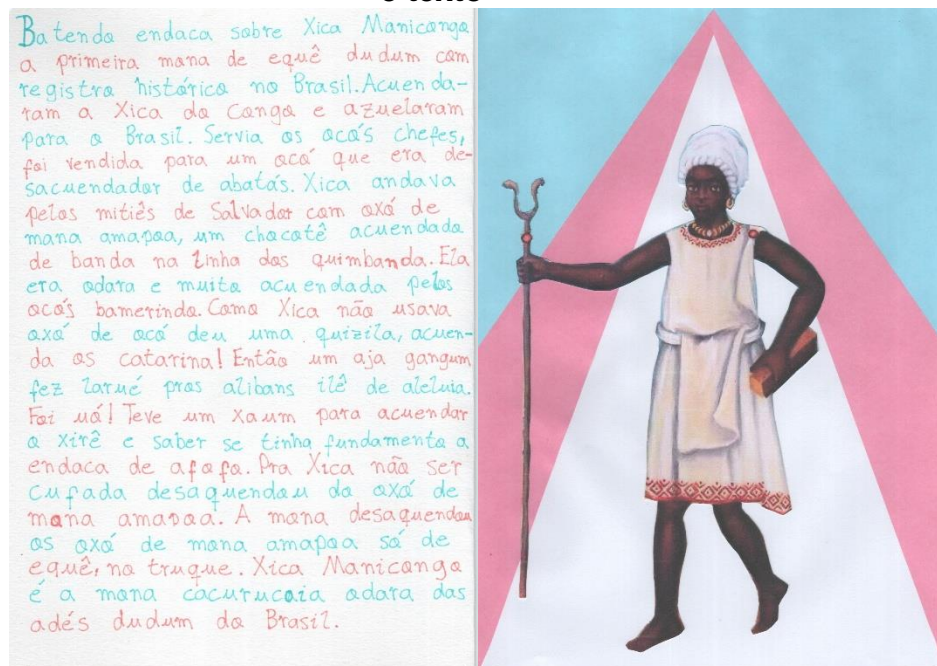 o texto
Batendo endaca sobre Xica Manicongo
a primeira mona de equê dudum com
registro histórico no Brasil. Acuenda-
ram a Xica do Congo e azuelaram
para o Brasil. Servia os ocós chefes,
foi vendida para um ocó que era de-
sacuendador de abatás. Xica andava
pelos mitiês de Salvador com axó de
mona amapoa, um chocotê acuendado
de banda na linha dos quimbanda. Ela
era odara e muito acuendada pelos
ocós bamerindo. Como Xica não usava
axó de ocó deu uma quizila, acuen-
da os catarina! Então um aja gangum
fez larué pros alibans ilê de aleluia.
Foi uó! Teve um xoum para acuendar
o xirê e saber se tinha fundamento a
endaca de afofo. Pra Xica não ser
cufada desaquendou do axó de
mona amapoa. A mona desaquendou
os axó de mona amapoa só de
equê, no truque. Xica Manicongo
é a mona cacurucaia odara das
adés dudum do Brasil.